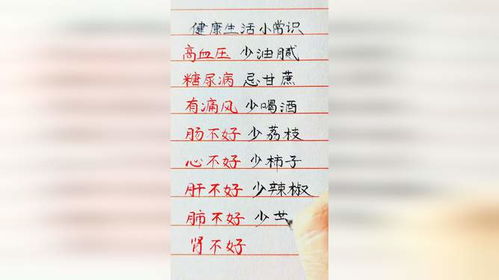 健康生活小常识
高血压 少油腻
糖尿病 忌甘蔗
有痛风 少喝酒
肠不好 少荔枝
心不好 少柿子
肝不好 少辣椒
肺不好 少
肾不好